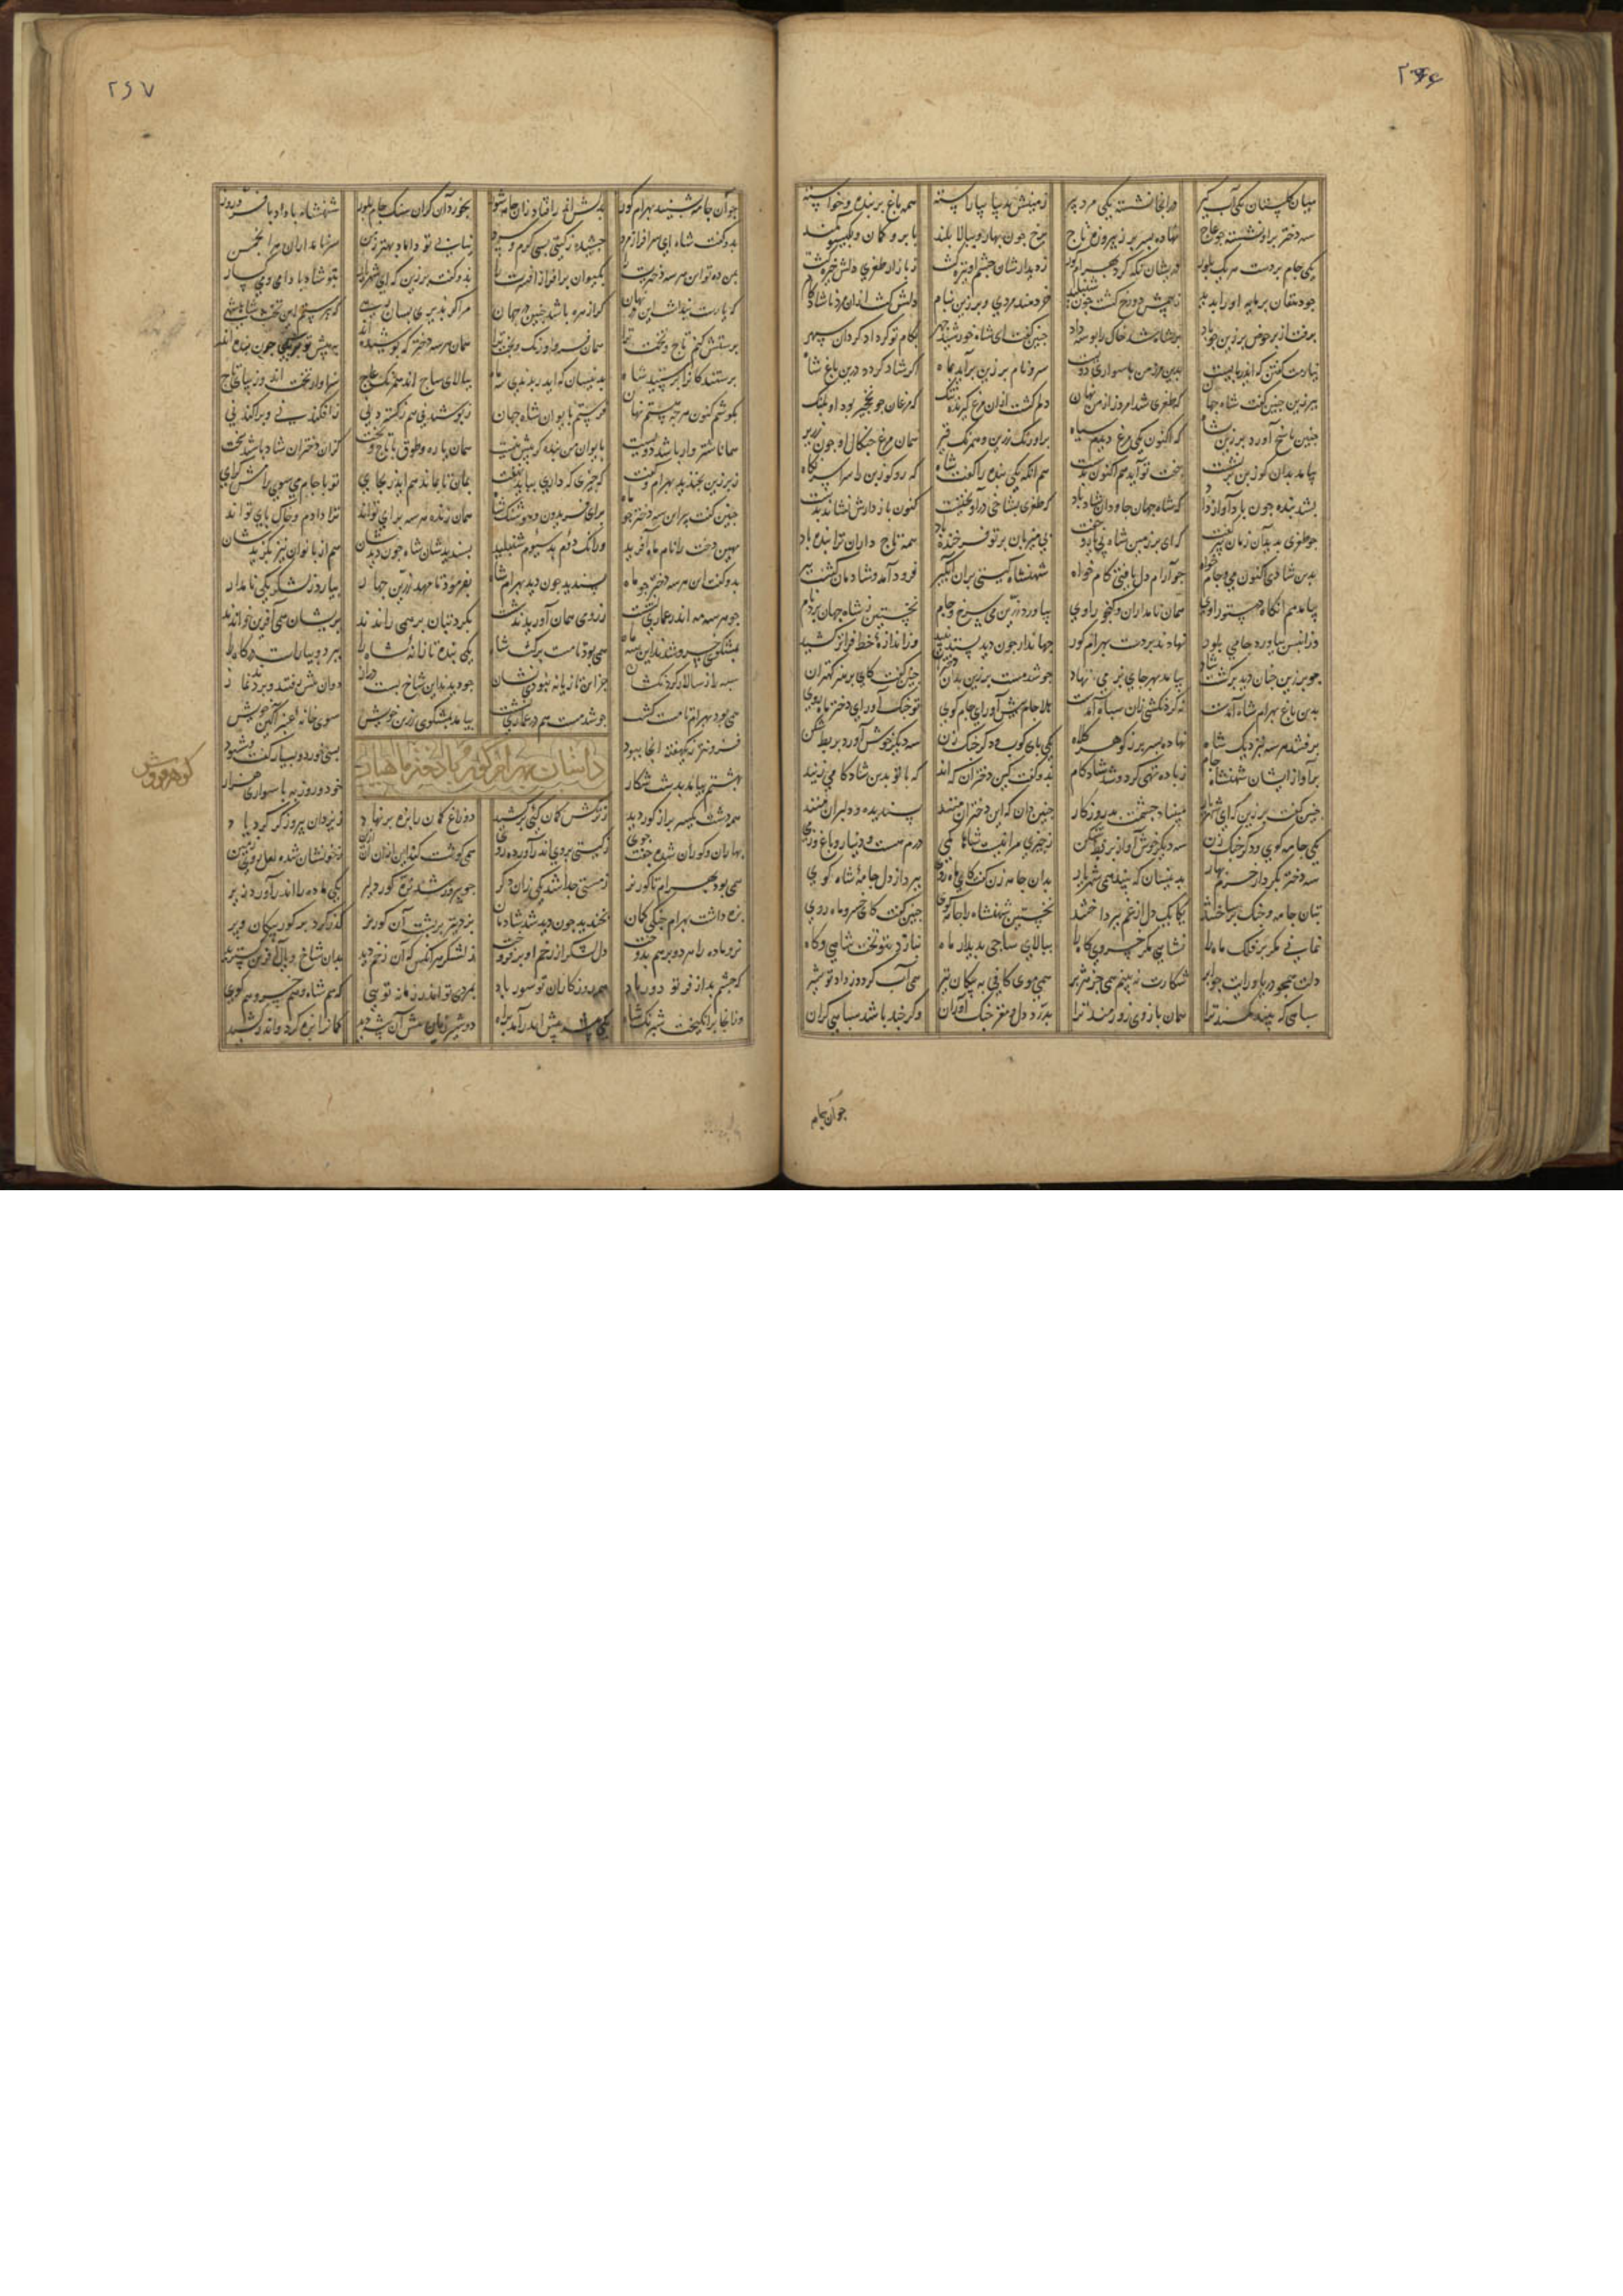 ۲۶۶
میان گلستان یکی آب گیر درانجا نشسته یکی مرد پیر زمینش بدیبا بیاراسته همه باغ پر بنده و خواسته
سه دختر براو نشسته چو عاج نهاده بسر بر ز پیروزه تاج برخ چون بهار و ببالا بلند بابرو کمان و بگیسو کمند
یکی جام بر دست هر یک بلور بدیشان نگه کرد بهرام گور ز دیدارشان چشم او تیره گشت ز طغری دلش خیره گشت
چو دهقان پرمایه او را بدید ز بیمش دو رخ گشت چون شنبلید خردمند مردی و برزین بنام دلش گشت ازان مرد ناشادکام
برفت از بر حوض برزین چو باد بر شاه شد خاک را بوسه داد چنین گفت کای شاه خورشید چهر بکام تو گرداد گردان سپهر
نیارمت گفتن که ایدر بایست بدین مرز من با سواری دویست سر و نام برزین برآید بماه اگر شاد گردد درین باغ شاه
ببرزین چنین گفت شاه جهان که طغری شد امروز از من نهان دلم گشت ازان مرغ گیرنده تنگ که مرغان چو نخچیر بود او پلنگ
چنین پاسخ آورد برزین بشاه که اکنون یکی مرغ دیدم سیاه براو زنگ زرین و همرنگ قیر همان مرغ چنگال او چون زریر
بیامد بدان گوزبن برنشست ببخت تو آید هم اکنون بدست هم انگه یکی بنده را گفت شاه که رو گوزبن را سراسر نگاه
بشد بنده چون باد آواز داد که شاه جهان جاودان شاد باد که طغری بشاخی درآویختست کنون بازدارش نشاند بدست
چو طغری پدید آمد آن پیر گفت که ای بر زمین شاه بی یار و جفت پی میزبان بر تو فرخنده باد همه تاج داران ترا بنده باد
بدین شادی اکنون می و جام خواه چو آرام دل یافتی کام خواه شهنشاه گیتی بران آبگیر فرود آمد و شادمان گشت پیر
بیامد هم انگاه دستور اوی همان نامداران و گنجور اوی بیاورد زرین می سرخ و جام نخستین ز شاه جهان برد نام
وزانپس بیاورد جامی بلور نهادند بر دست بهرام گور جهاندار چون دید بستد نبید ورا اندازه خط فراتر کشید
چو برزین چنان دید برگشت شاد بیامد بهر جای خمی نهاد چو شد مست برزین بدان دختران چنین گفت کای پرهنر کهتران
بدین باغ بهرام شاه آمدست نه گردنکشی زان سپاه آمدست هلا جام پیش آور ای جامه گوی تو چنگ آور ای دختر ماه روی
برفتند هر سه بنزدیک شاه نهاده بسر بر ز گوهر کلاه یکی پای کوب و دگر چنگ زن سه دیگر خوش آورد بربط شکن
بر آواز ایشان شهنشاه جام ز باده تهی کرد و شد شادکام بدو گفت کین دختران که اند که با تو بدین شادکامی زیند
چنین گفت برزین که ای شهریار مبیناد چشمت بد روزگار چنین دان که این دختران منند پسندیده و دلبران منند
یکی جامه گوی و دگر چنگ زن سه دیگر خوش آواز بربط شکن ز چیزی مرا نیست شاها کمی درم هست و دینار و باغ و
سه دختر بکردار خرم بهار بدینسان که بیند همی شهریار بدان جامه زن گفت کای ماه روی بپرداز دل جامه شاه گوی
بتان جامه و چنگ برساختند یکایک دل از غم بپرداختند نخستین شهنشاه را جامه گوی چنین گفت کای خسرو ماه روی
نمانی مگر بر فلک ماه را نشایی مگر خسروی گاه را ببالای ساجی بدیدار ماه بنازد بتو تخت شاهی و گاه
دلت همچو دریا و رایت چو ابر شکارت نبینم همی جز هژبر همی موی کافی به پیکان تیر همی آب گردد ز داد تو شیر
سپاهی که بیند کمند ترا همان بازوی زورمند ترا بدرد دل و مغز جنگ آوران وگر چند باشد سپاهی گران
چو آن جام
۲۶۷
چو آن جامه بشنید بهرام گور بدلش اندر افتاد زان جامه شور بخورد آن گران سنگ جام بلور شهنشاه با داد با فر و زور
بدو گفت شاه ای سرافراز مرد چشیده ز گیتی بسی گرم و سرد نیابی تو داماد بهتر ز من سر نامداران هر انجمن
بمن ده تو این هر سه دخترت را بکیوان برافراز افسرت را بدو گفت برزین که ای شهریار بتو شاد بادا می و
که یارست پنداشت این در نهان که از باشد چنین در جهان مرا گر پذیری بسان رهی که بپرستم این تخت شاهنشهی
پرستش کنم تاج و تخت ترا همان فر و اورنگ و بخت ترا همان هر سه دختر که پوشیده اند به پیش تو بر پای چون بنده اند
پرستندگانرا پسندید شاه بدینسان که سه ماه ببالای ساج اند و همرنگ عاج سزاوار تخت اند و زیبای تاج
بگویم کنون هرچه هستم نهان فرستم بایوان شاه جهان ز پوشیدنی هم ز گستردنی ز افگندنی و پراگندنی
همانا شتروار باشد دویست بایوان من بنده گر بیش نیست همان یاره و طوق با تاج و تخت کزان دختران شاد باشند سخت
ز برزین بخندید بهرام و گفت که چیزی که داری بباید نهفت بمان تا بماند هم ایدر بجای تو با جام می سوی رامش گرای
چنین گفت پیر این سه دختر چو ماه برای فریدون و هوشنگ شاه همان زنده هر سه برای تواند ترا دادم و خاک پای تو اند
مهین دخت را نام ماه آفرید فرانک دوم بد سیوم شنبلید پسندیدشان شاه چون دیدشان هم از بانوان نیز بگزیدشان
بدو گفت این هر سه دختر چو ماه پسندید چون دید بهرام شاه بفرمود تا مهد زرین چهار بیارد ز لشکر یکی نامدار
چو هر سه مه اندر عماری نشست ز رومی همان آوریدند شصت بگرد بتان بر همی راندند بریشان همی آفرین خواندند
بمشکوی خسرو شدند این سه ماه همی بود تا مست برگشت شاه یکی بنده تازانه شاه را ببرد و بیاراست درگاه را
سپه را ز سالار گردنکشان جز این تازیانه نبودی نشان چو دیدند این شاخ دراز دوان پیش رفتند و بردند نماز
همی بود بهرام تا مست گشت چو شد مست هم در عماری نشست بیامد بمشکوی زرین خویش سوی خانه عنبر آگین خویش
فزونتر ز یکهفته انجا ببود بسی خورد و بسیار گفت و شنود
داستان بهرام گور با دختر ماهیار
گوهر فروش
بهشتم بیامد بدشت شکار خود و روزبه با سواری هزار
همه دشت یکسر پر از گور دید ز ترکش کمان کئی برکشید دو زاغ کمان را بزه بر نهاد ز یزدان پیروزگر کرد یاد
بهاران و گوران شده جفت جوی ز گیتی بروی اندر آورده روی همی پوست کند این ازان آن ازین ز خونشان شده لعل روی زمین
همی بود بهرام تا گور نر ز مستی جدا شد یکی زان دگر چو پیروز شد نره گور دلیر یکی ماده را اندر آورد زیر
بزه داشت بهرام جنگی کمان بخندید چون دید شد شادمان بزد تیر بر پشت آن گور نر گذر کرد بر گور پیکان و پر
نر و ماده را هر دو برهم بدوخت دل لشکر از زخم او برفروخت ز لشکر هرانکس که آن زخم دید بدان شاخ و یال آفرین گسترید
که چشم بد از فر تو دور باد همه روزگاران تو سور باد بمردی تو اندر زمانه نوی که هم شاه و هم خسرو و هم گوی
وزانجا برانگیخت شبرنگ شاه یکی بیشه پیش اندر آمد براه دو شیر ژیان پیش آن بیشه دید کمانرا بزه کرد و اندر کشید